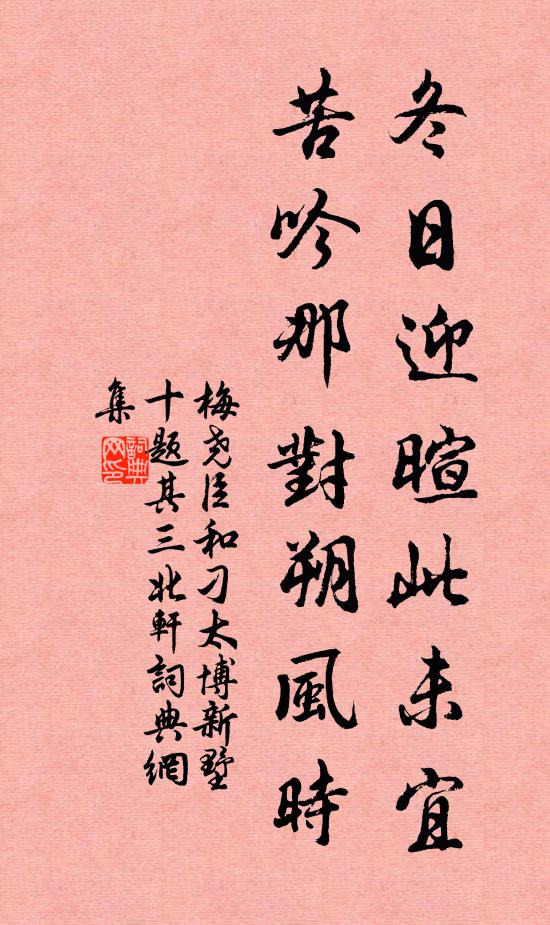 冬日迎暄此未宜
苦吟那對朔風時
梅堯臣和刁太博新墅
十題其三北軒詞典網
集
詞典網印